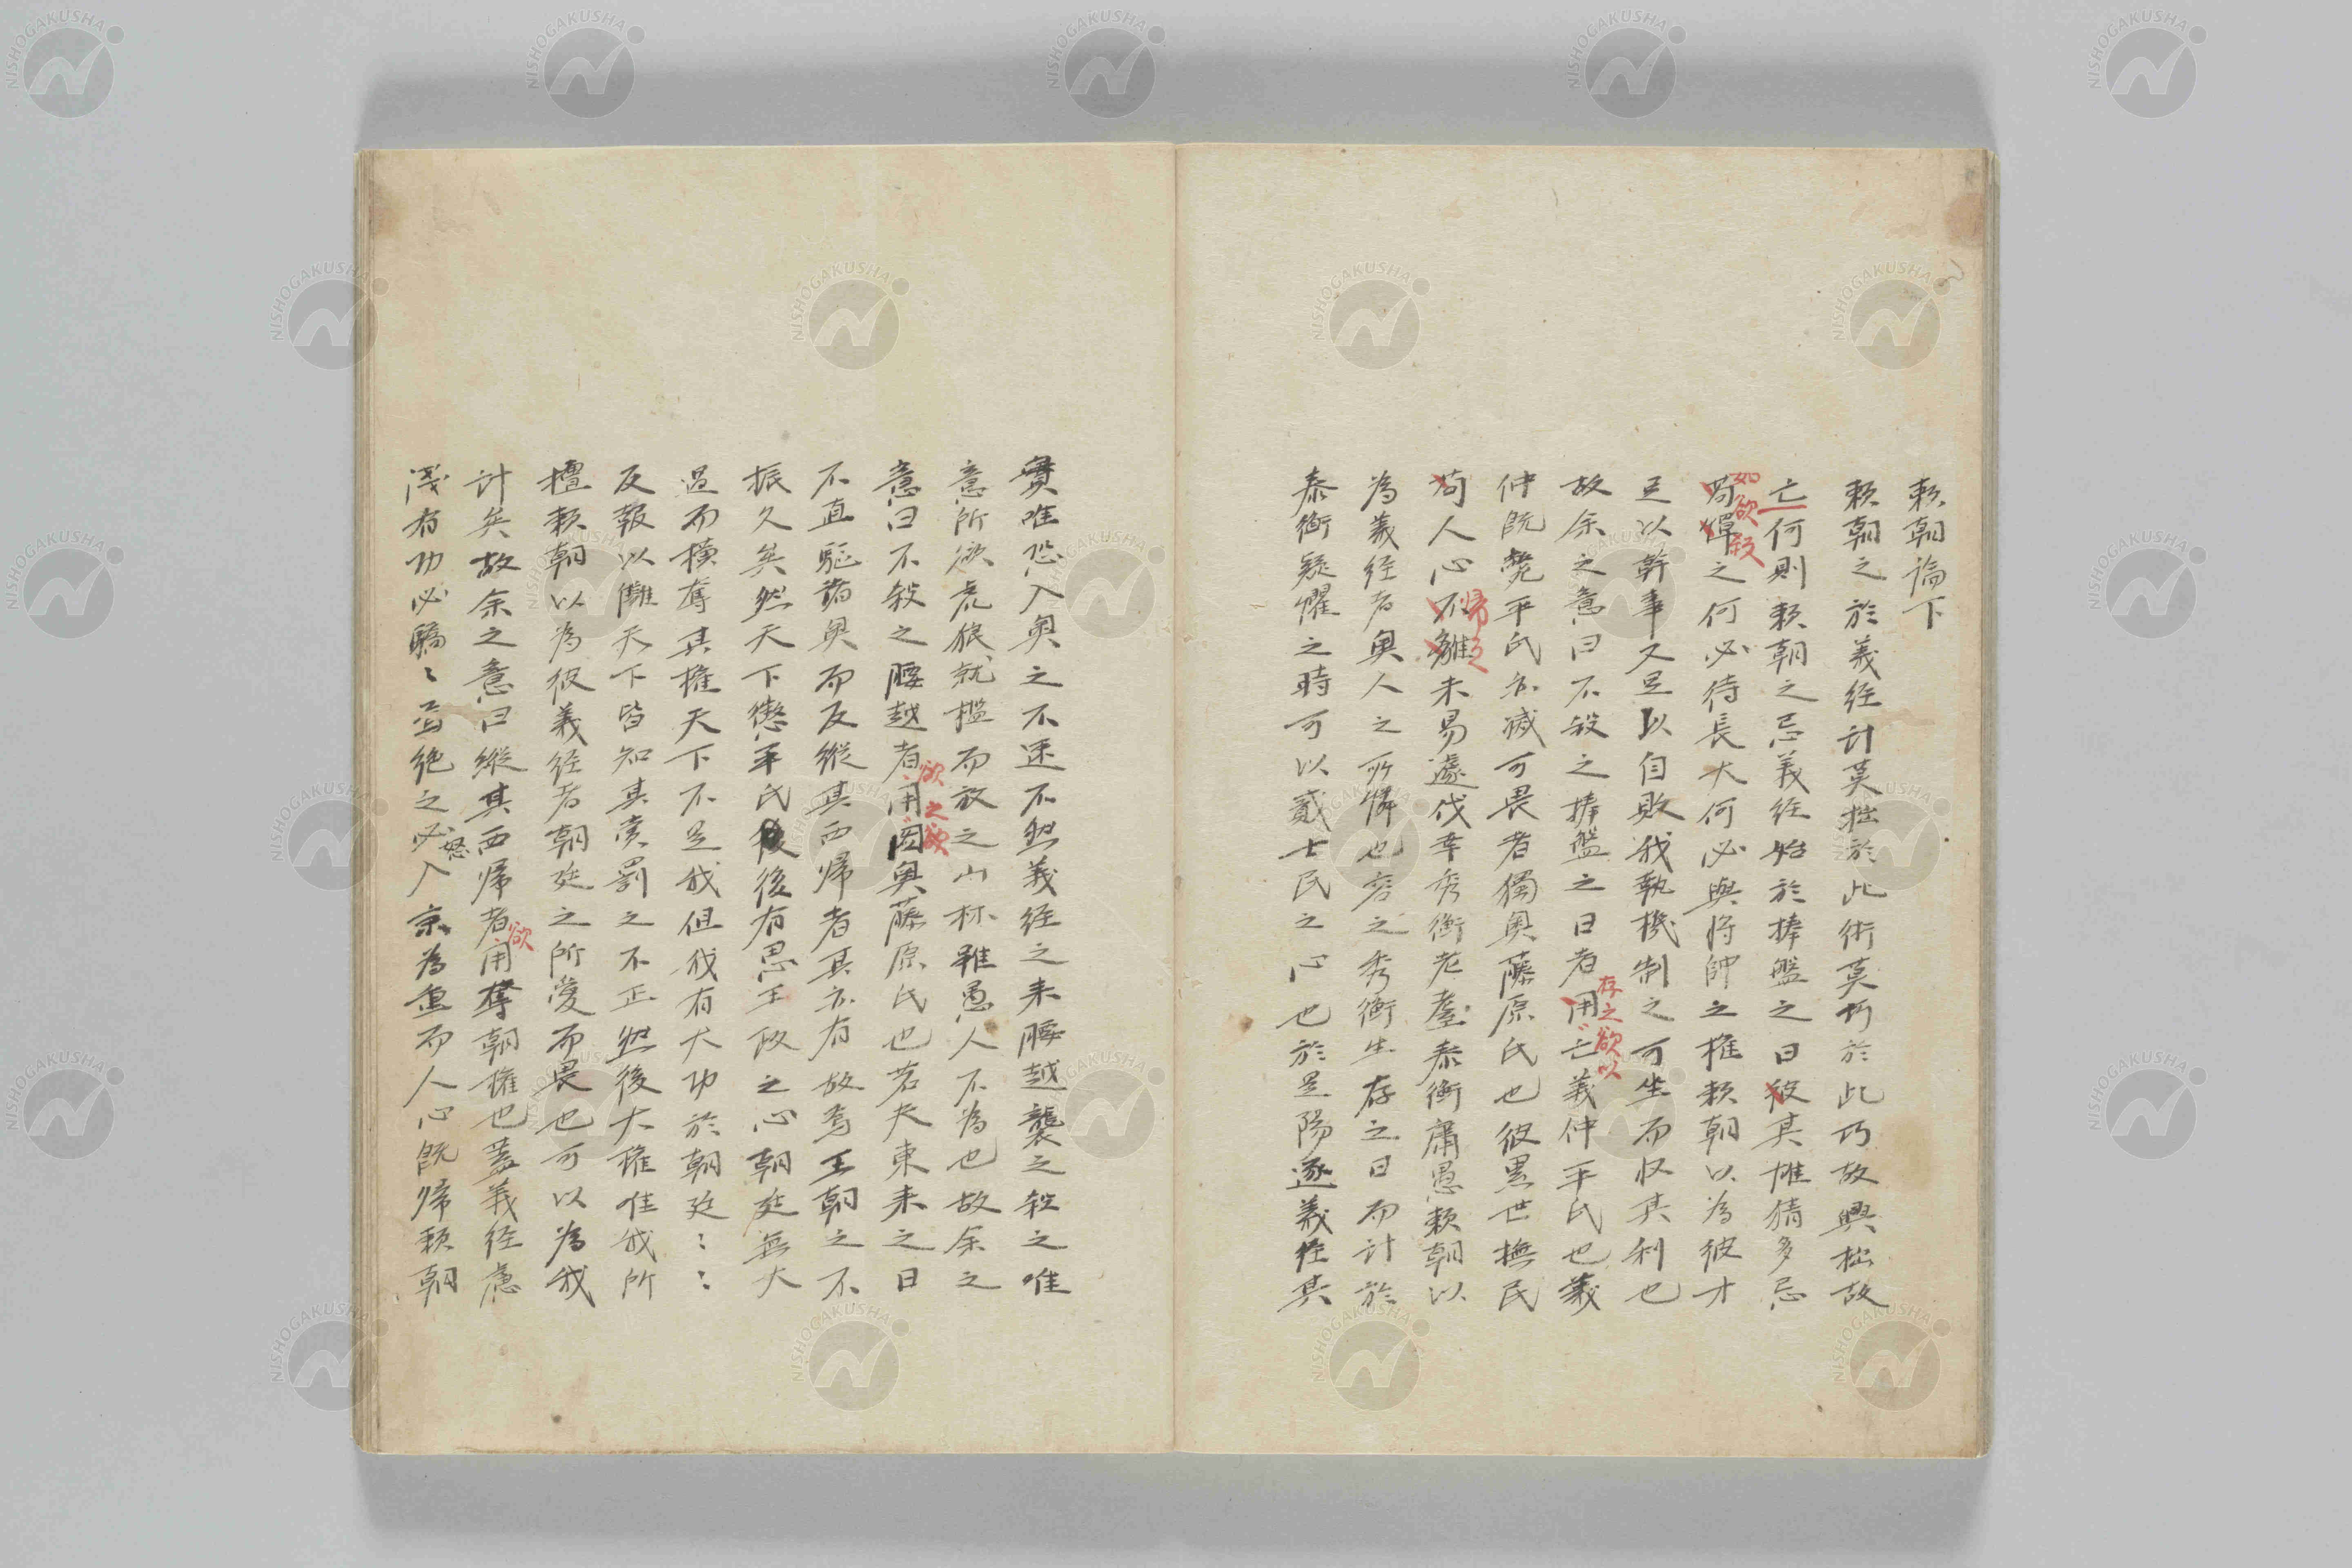 頼朝論下
頼朝之於義経計莫拙於此術莫巧於此巧故興拙故
亡何則頼朝之忌義経始於捧盤之日彼其惟猜多忌
苟憚之何必待長大何必與將帥之権頼朝以為彼才
如欲殺
足以幹事又足以自敗我執機制之可坐而収其利也
故余之意曰不殺之捧盤之日者用亡義仲平氏也義
存之欲以
仲既斃平氏亦滅可畏者獨奥藤原氏也彼累世撫民
苟人心不離未易遽伐幸秀衡老耋泰衡庸愚頼朝以
帰之
為義経者奥人之所憐也客之秀衡生存之日而計於
泰衡疑懼之時可以貳士民之心也於是陽逐義経其
實唯恐入奥之不速不然義経之来腰越襲之殺之唯
意所欲虎狼就檻而放之山林雖愚人不為也故余之
意曰不殺之腰越者用図奥藤原氏也若夫東来之日
欲之欲
不直驅諸奥而反縦其西帰者其亦有故焉王朝之不
振久矣然天下懲平氏後後有思王政之心朝廷無大
過而横奪其権天下不足我但我有大功於朝廷〻〻
反報以讎天下皆知其賞罰之不正然後大権唯我所
擅頼朝以為彼義経者朝廷之所愛而畏也可以為我
計矣故余之意曰縦其西帰者用奪朝権也蓋義経慮
欲
淺有功必驕〻而絶之必怒入京為亜而人心既帰頼朝
NISHOGAKUSHA